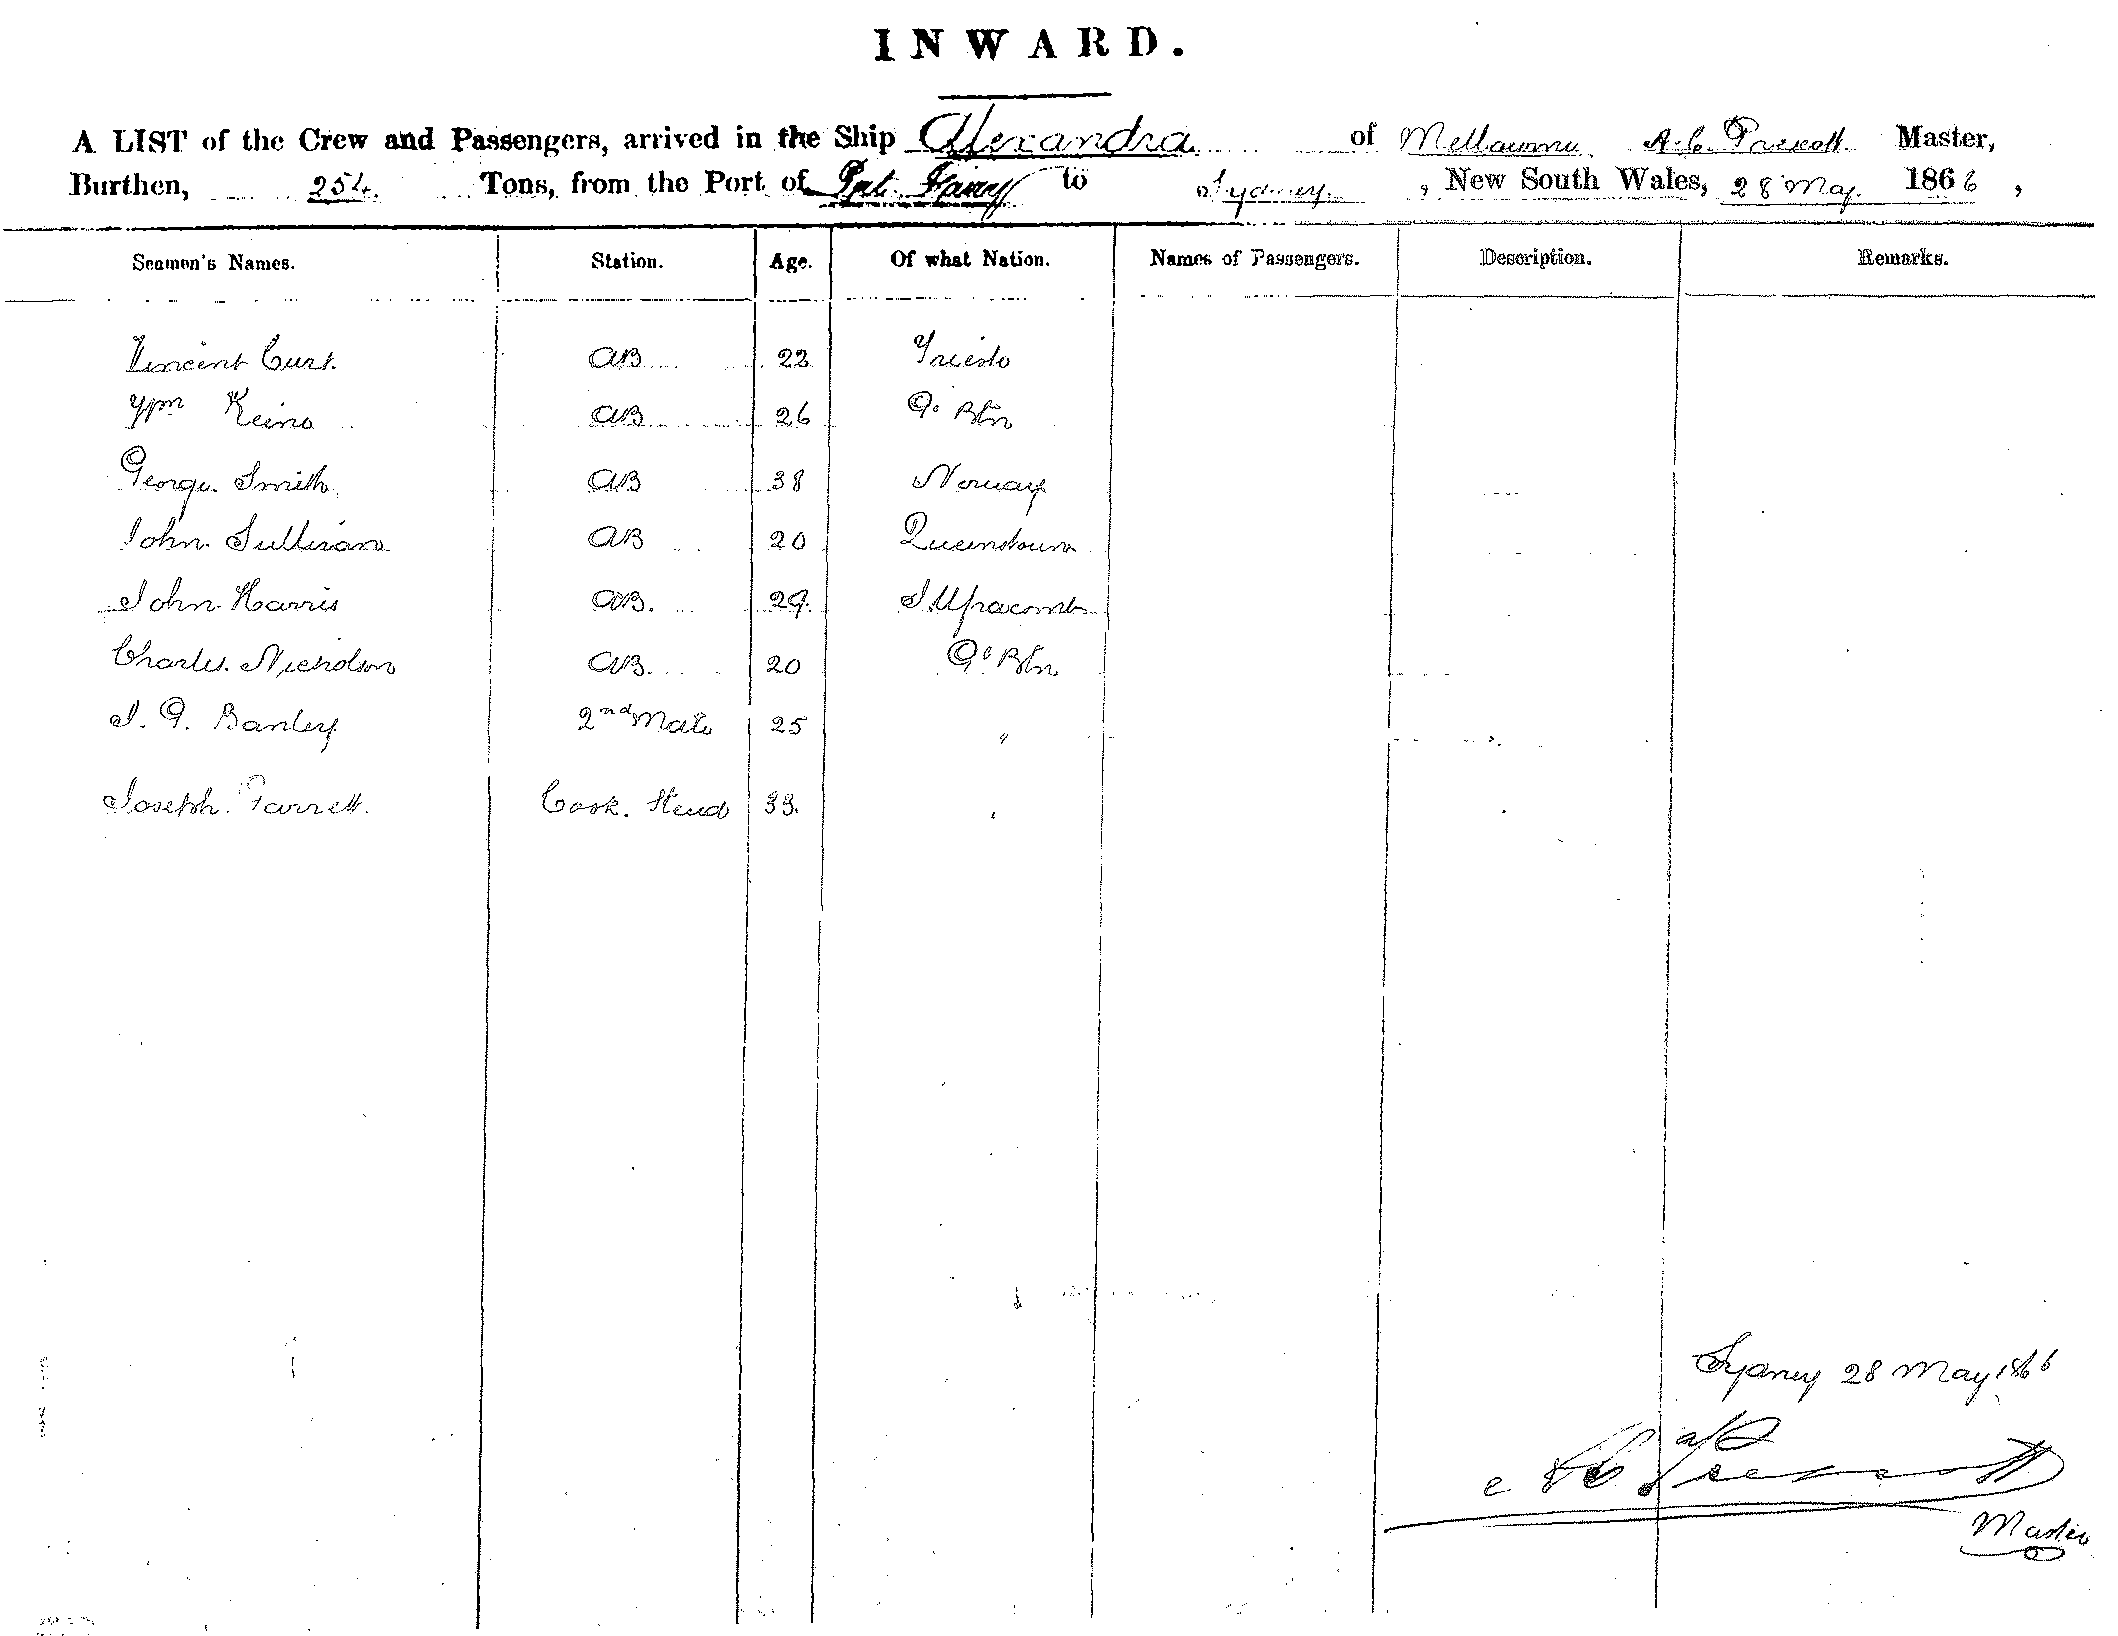 INWARD.
A LIST of the Crew and Passengers, arrived in the Ship Alexandra of Melbourne A. C. Prescott Master,
Burthen, 254 Tons, from the Port of to Sydney, New South Wales, 28 May 1866,
Seamen's Names. Station. Age. Of what Nation. Names of Passengers. Description. Remarks.
Vincent Curt. AB 22 Trieste
Wm AB 26 Gt Btn
George Smith AB 38 Norway
John Sullivan AB 20 Queenstown
John Harris AB. 29 Ilfracomb
Charles Nicholson AB. 20 Gt Btn
J. G. Banley 2nd Mate 25 "
Joseph Parrett. Cook. Steud 33. "
Sydney 28 May 1866
Prescott
Master